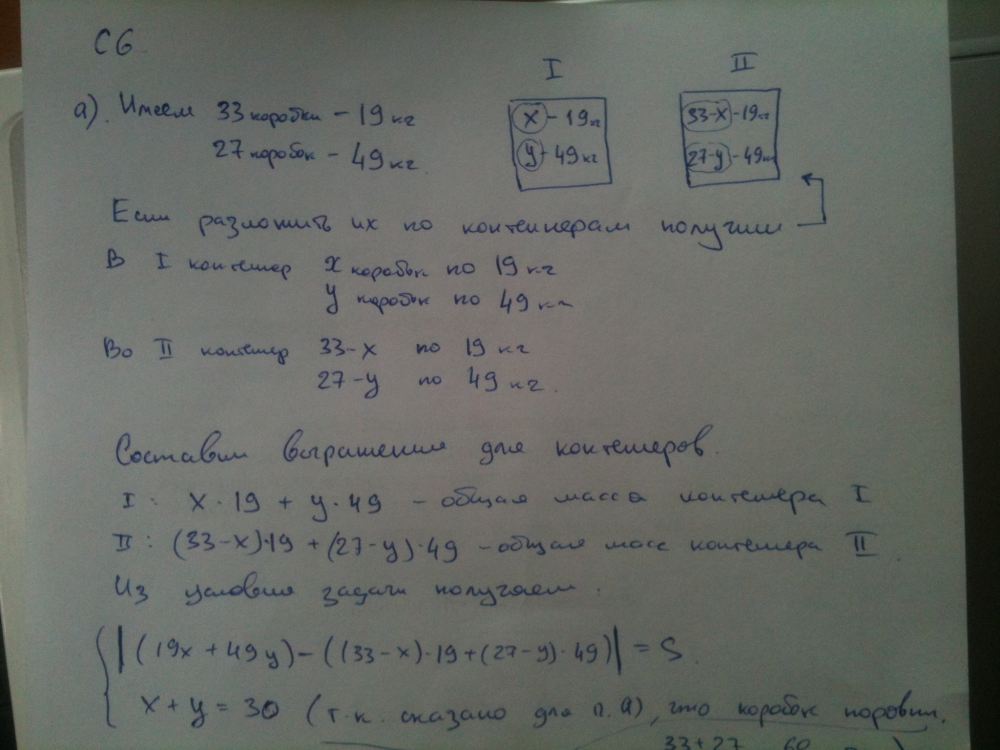 С6
I II
а). Имеем 33 коробки - 19 кг
27 коробок - 49 кг.
x - 19кг
y - 49 кг
33-x - 19кг
27-y - 49кг
Если разложить их по контейнерам получим
В I контейнер x коробок по 19 кг
y коробок по 49 кг
Во II контейнер 33-x по 19 кг
27-y по 49 кг.
Составим выражения для контейнеров.
I : x·19 + y·49 - общая масса контейнера I
II : (33-x)·19 + (27-y)·49 - общая масс контейнера II.
Из условия задачи получаем :
|(19x + 49y) - ((33-x)·19 + (27-y)·49)| = S.
x + y = 30 (т.к. сказано для п. а), что коробок поровну.
33+27 60